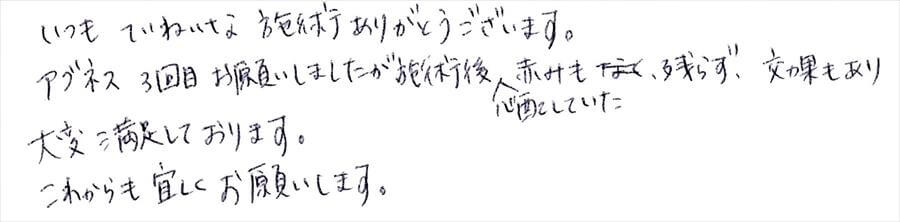 いつも ていねいな 施術ありがとうございます。
アグネス 3回目 お願いしましたが施術後心配していた赤みも 残らず、効果もあり
大変満足しております。
これからも宜しくお願いします。